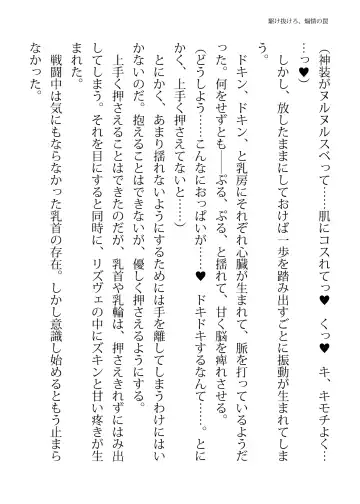 駆け抜けろ、煽情の罠
(神装がヌルヌルスベって……肌にコスれてっ♥　くっ♥　キ、キモチよく…
…っ♥)
　しかし、放したままにしておけば一歩を踏み出すごとに振動が生まれてしま
う。
　ドキン、ドキン、と乳房にそれぞれ心臓が生まれて、脈を打っているようだ
った。何をせずとも――ぷる、ぷる、と揺れて、甘く脳を痺れさせる。
(どうしよう……こんなにおっぱいが……♥　ドキドキするなんて……。とに
かく、上手く押さえてないと……)
　とにかく、あまり揺れないようにするためには手を離してしまうわけにはい
かないのだ。抱えることはできないが、優しく押さえるようにする。
　上手く押さえることはできたのだが、乳首や乳輪は、押さえきれずにはみ出
してしまう。それを目にすると同時に、リズヴェの中にズキンと甘い疼きが生
まれた。
　戦闘中は気にもならなかった乳首の存在。しかし意識し始めるともう止まら
なかった。